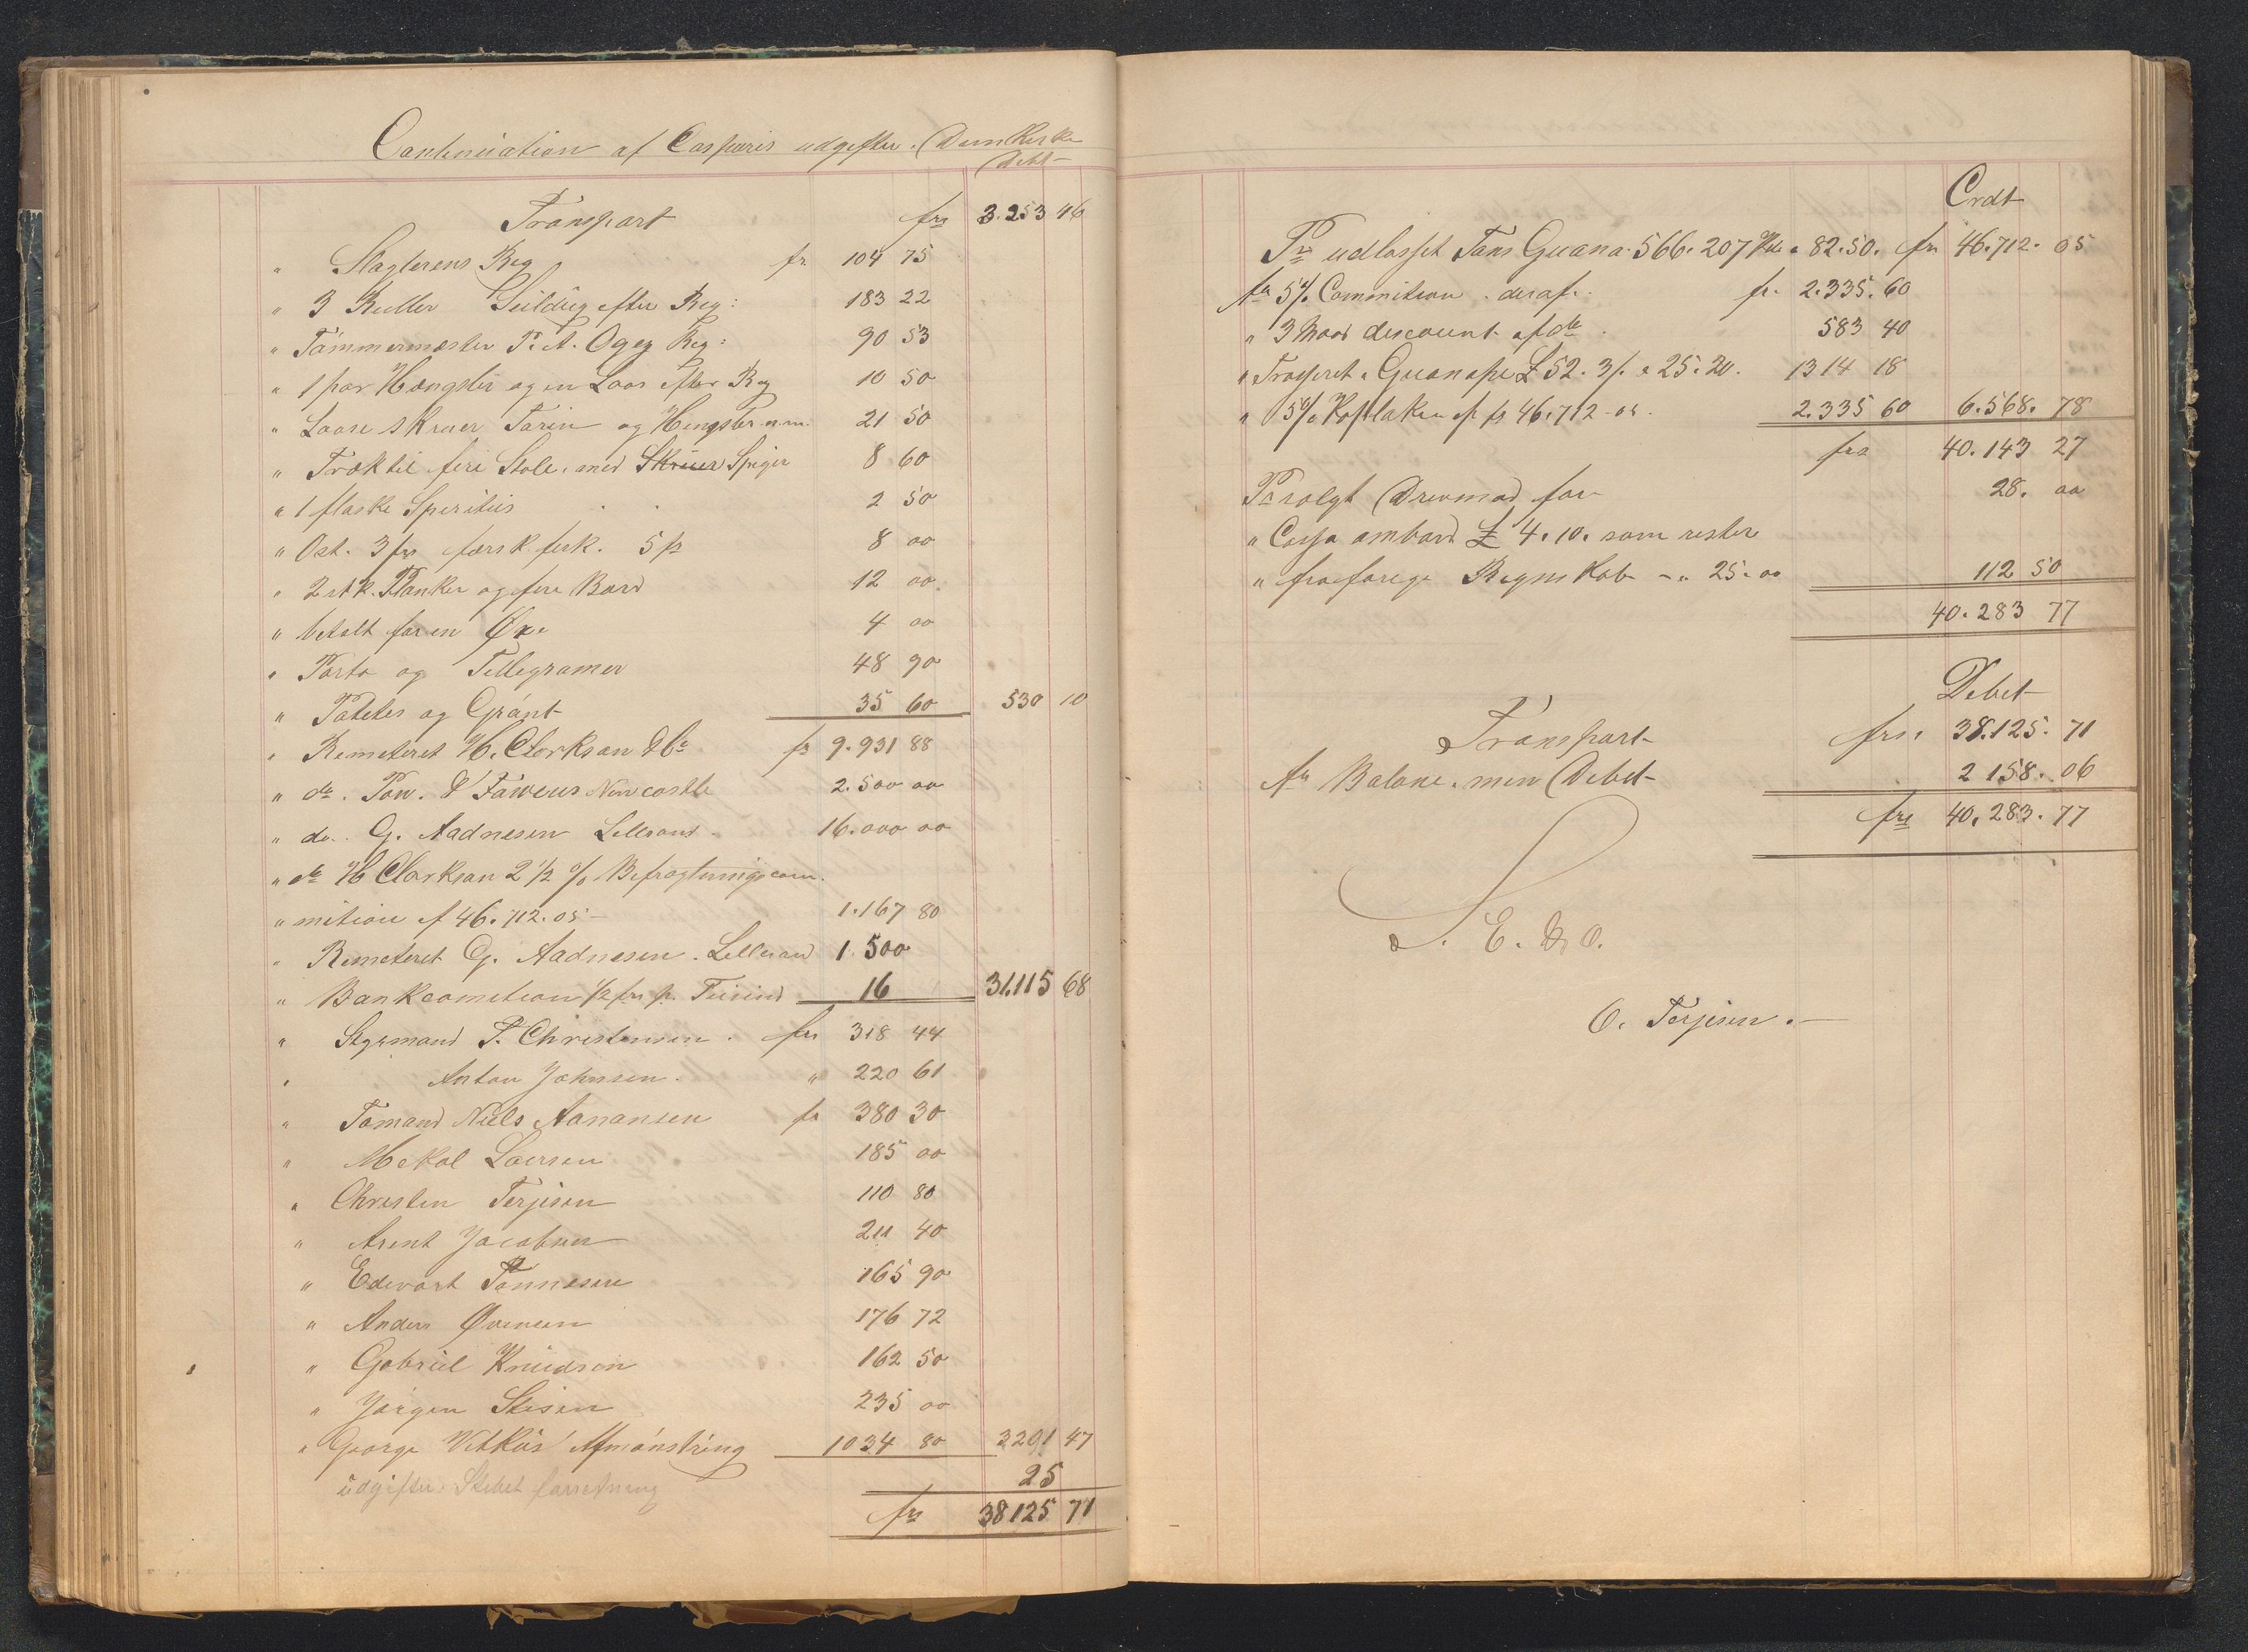 Continuation af Casparis udgifter. Dunkerke
Debt
Transport frs 3.253 46
" Slagterens Reg fr. 104 75
" 3 Ruller Seildug efter Reg: 183 22
" Tømmermester P. A. Ogey Reg: 90 53
" 1 par Hængsler og en Laas efter Reg 10 50
" Laase skruer Tarin og Hengsler m.m. 21 50
" Træk til fire Stole, med Skruer Spiger 8 60
" 1 flaske Speritus 2 50
" Ost. 3 frs fersk fesk. 5 fr 8 00
" 2 stk. Planker og fire Bord 12 00
" betalt for en Øxe 4 00
" Porto og Tellegramer 48 90
" Poteter og Grønt 35 60 530 10
" Remeteret H. Clarkson & Co fr 9.931 88
" do. Pow. & Fawcus Newcastle 2.500 00
" do. G. Aadnesen Lillesand 16.000 00
" do H Clarkson 2 1/2 % Befragtningscom.
" mition af 46.712.05 – 1.167 80
" Remeteret G. Aadnesen. Lillesand 1.500
" Bankcomition 1/2 frs p. Tusind 16 31.115 68
" Styrmand P. Christensen. frs 318 44
" Anton Johnsen. " 220 61
" Tømand Niels Aanansen fr 380 30
" Mekal Laersen 185 00
" Christen Terjesen 110 80
" Arent Jacobsen 211 40
" Edevart Tønnesen 165 90
" Anders Øvensen 176 72
" Gabriel Knudson 162 50
" Jørgen Stesen 235 00
" George Vitkus Afmønstring 1034 80 3201 47
udgifter Skibet forretning 25
frs 38125 71
Crdt
Pr udlosset Tons Guana. 566. 207 Kilo a 82.50. frs 46.712. 05
fr 5% Commition. deraf. fr. 2.335. 60
" 3 Maad discount af do. 583 40
" Trasseret i Guanape £ 52. 3/. a 25.20. 1314 18
" 5% Kaplaken af fr 46.712-05. 2.335 60 6.568. 78
frs 40.143 27
Pr solgt Drevmad for 28. 00
" Cassa ombord £ 4.10. som rester
" fra forige Regnskab – a 25.00 112 50
40.283 77
Debet
Transport frs. 38.125. 71
fr Balance. men Debet 2 158. 06
frs 40.283. 77
S. E. & O.
O. Terjesen.